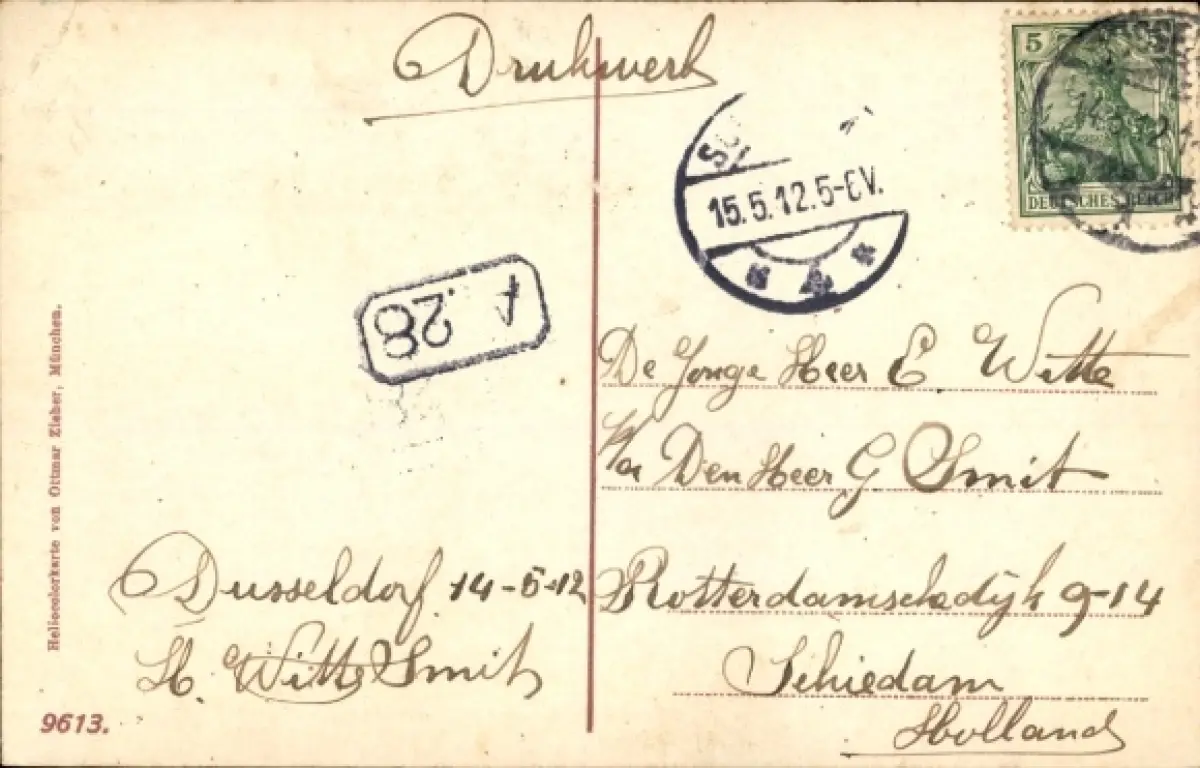 Drukwerk
5
DEUTSCHES REICH
15.5.12.5-6V.
A.28
De Jonge Heer E Witte
p/a Den Heer G Smit
Rotterdamschedijk 9-14
Schiedam
Holland
Dusseldorf 14-5-12
H. Witte Smit
Heliocolorkarte von Ottmar Zieher, München.
9613.